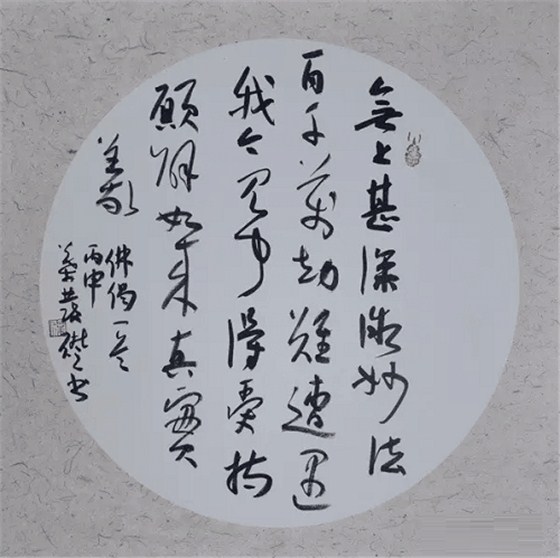 無上甚深微妙法
百千萬劫難遭遇
我今見聞得受持
願解如來真實
義敬
佛偈一首
丙申
書